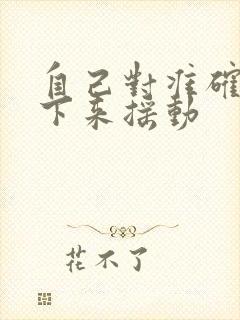 自己對准確
下來搖動
花不了